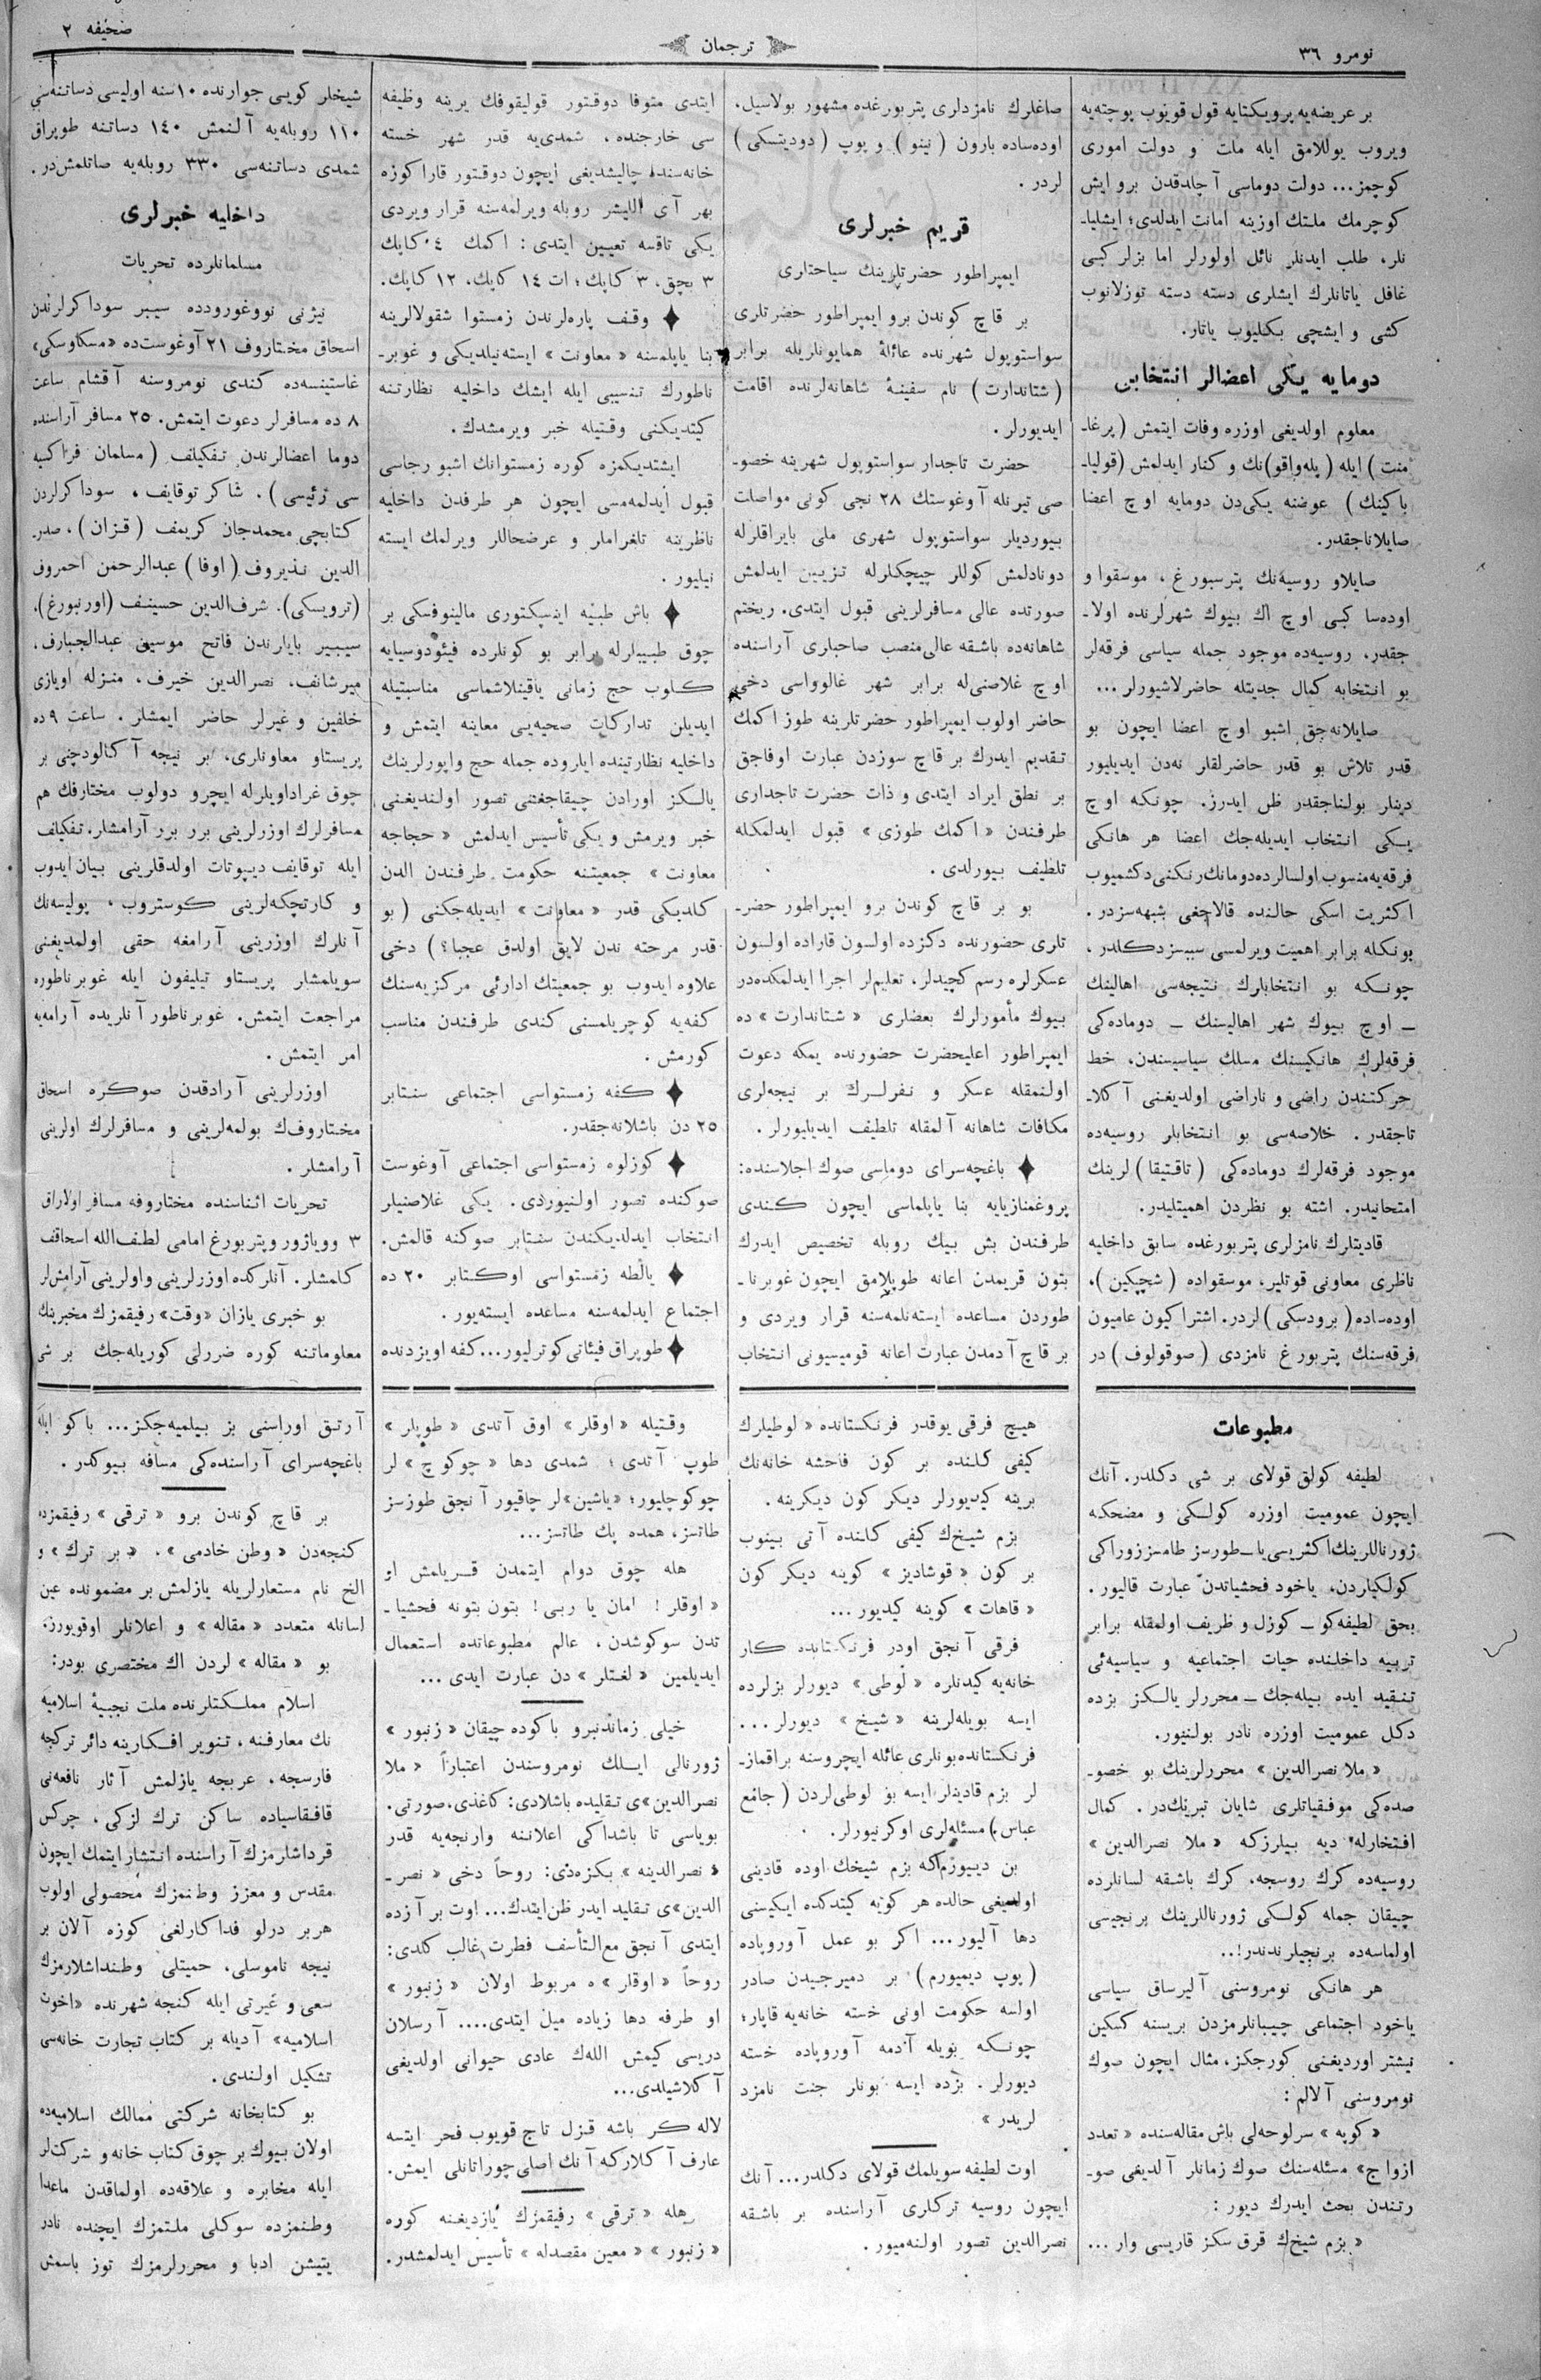 نومرو ٣٦
ترجمان
صحیفه ٢
بر عریضه‌یه پرویکتایه قول قویوب پوچته‌یه
ویروب یوللامق ایله ملت و دولت اموری
کوچمز... دولت دوماسی آچلدقدن برو ایش
کوچرمك ملتك اوزینه امانت ایدلدی؛ ایشلیا-
نلر، طلب ایدنلر نائل اولورلر اما بزلر کبی
غافل یاتانلرك ایشلری دسته دسته توزلانوب
کشی و ایشچی بکلیوب یاتار.
دومایه یکی اعضالر انتخابی
معلوم اولدیغی اوزره وفات ایتمش (پرغا-
منت) ایله (پله‌واقو)نك و کنار ایدلمش (قولیا-
باکینك) عوضنه یکی‌دن دومایه اوچ اعضا
صایلاناجقدر.
صایلاو روسیه‌نك پترسبورغ، موسقوا و
اوده‌سا کبی اوچ اك بیوك شهرلرنده اولا-
جقدر، روسیه‌ده موجود جمله سیاسی فرقه‌لر
بو انتخابه کمال جدیتله حاضرلاشیورلر...
صایلانه‌جق اشبو اوچ اعضا ایچون بو
قدر تلاش بو قدر حاضرلقلر نه‌دن ایدیلیور
دینلر بولناجقدر ظن ایدرز. چونکه اوچ
یکی انتخاب ایدیله‌جك اعضا هر هانکی
فرقه‌یه منسوب اولسالرده دومانك رنکنی دکشمیوب
اکثریت اسکی حالنده قالاجغی شبهه‌سزدر.
بونکله برابر اهمیت ویرلمسی سببسز دکلدر،
چونکه بو انتخابلرك نتیجه‌سی اهالینك
ـ اوچ بیوك شهر اهالیسنك ـ دوماده‌کی
فرقه‌لرك هانکیسنك مسلك سیاسیسندن، خط
حرکتندن راضی و ناراضی اولدیغنی آکلا-
تاجقدر. خلاصه‌سی بو انتخابلر روسیه‌ده
موجود فرقه‌لرك دوماده‌کی (تاقتیقا) لرینك
امتحانیدر. اشته بو نظردن اهمیتلیدر.
قادیتلرك نامزلری پتربورغده سابق داخلیه
ناظری معاونی قوتلیر، موسقواده (شچپکین)،
اوده‌ساده (برودسکی) لردر. اشتراکیون عامیون
فرقه‌سنك پتربورغ نامزدی (صوقولوف) در
صاغلرك نامزدلری پتربورغده مشهور بولاسیل،
اوده‌ساده بارون (نینو) و پوپ (دودیتسکی)
لردر.
قریم خبرلری
ایمپراطور حضرتلرینك سیاحتلری
بر قاچ کوندن برو ایمپراطور حضرتلری
سواستوپول شهرنده عائلهٔ همایونلریله برابر
(شتاندارت) نام سفینهٔ شاهانه‌لرنده اقامت
ایدیورلر.
حضرت تاجدار سواستوپول شهرینه خصو-
صی تیرنله آوغوستك ٢٨ نجی کونی مواصلت
بیوردیلر سواستوپول شهری ملی بایراقلرله
دونادلمش کوللر چیچکلرله تزیین ایدلمش
صورتده عالی مسافرلرینی قبول ایتدی. ریختم
شاهانه‌ده باشقه عالی منصب صاحبلری آراسنده
اوچ غلاصنی‌له برابر شهر غالوواسی دخی
حاضر اولوب ایمپراطور حضرتلرینه طوز اکمك
تقدیم ایدرك بر قاچ سوزدن عبارت اوفاجق
بر نطق ایراد ایتدی و ذات حضرت تاجداری
طرفندن «اکمك طوزی» قبول ایدلمکله
تلطیف بیورلدی.
بو بر قاچ کوندن برو ایمپراطور حضر-
تلری حضورنده دکزده اولسون قاراده اولسون
عسکرلره رسم کچیدلر، تعلیم‌لر اجرا ایدلمکده‌در
بیوك مأمورلرك بعضلری «شتاندارت» ده
ایمپراطور اعلیحضرت حضورنده یمکه دعوت
اولنمقله عسکر و نفرلرك بر نیجه‌لری
مکافات شاهانه آلمقله تلطیف ایدیلیورلر.
باغچه‌سرای دوماسی صوك اجلاسنده:
پروغمنازیایه بنا یاپلماسی ایچون کندی
طرفندن بش بیك روبله تخصیص ایدرك
بتون قریمدن اعانه طوپلامق ایچون غوبرنا-
طوردن مساعده ایسته‌نلمه‌سنه قرار ویردی و
بر قاچ آدمدن عبارت اعانه قومیسیونی انتخاب
ایتدی متوفا دوقتور قولیقوفك یرینه وظیفه
سی خارجنده، شمدی‌یه قدر شهر خسته
خانه‌سنده چالیشدیغی ایچون دوقتور قاراکوزه
بهر آی اللیشر روبله ویرلمه‌سنه قرار ویردی
یکی تاقسه تعیین ایتدی: اکمك ٤ کاپك
٣ بچق، ٣ کاپك؛ ات ١٤ کاپك، ١٢ کاپك.
وقف پاره‌لرندن زمستوا شقولالرینه
بنا یاپلمسنه «معاونت» ایسته‌نیلدیکی و غوبر-
ناطورك تنسیبی ایله ایشك داخلیه نظارتنه
کیتدیکنی وقتیله خبر ویرمشدك.
ایشتدیکمزه کوره زمستوانك اشبو رجاسی
قبول ایدلمه‌مسی ایچون هر طرفدن داخلیه
ناظرینه تلغراملر و عرضحاللر ویرلمك ایسته
نیلیور.
باش طبیه اینسپکتوری مالینوفسکی بر
چوق طبیبلرله برابر بو کونلرده فیئودوسیایه
کلوب حج زمانی یاقینلاشماسی مناسبتیله
ایدیلن تدارکات صحیه‌یی معاینه ایتمش و
داخلیه نظارتینده ایلروده جمله حج واپورلرینك
یالکز اورادن چیقاجغنی تصور اولندیغنی
خبر ویرمش و یکی تأسیس ایدلمش «حجاجه
معاونت» جمعیتنه حکومت طرفندن الدن
کلدیکی قدر «معاونت» ایدیله‌جکنی (بو
قدر مرحته ندن لایق اولدق عجبا؟) دخی
علاوه ایدوب بو جمعیتك اداره‌ئی مرکزیه‌سنك
کفه‌یه کوچریلمسنی کندی طرفندن مناسب
کورمش.
کفه زمستواسی اجتماعی سنتابر
٢٥ دن باشلانه‌جقدر.
کوزلوه زمستواسی اجتماعی آوغوست
صوکنده تصور اولنیوردی. یکی غلاصنیلر
انتخاب ایدلدیکندن سنتابر صوکنه قالمش.
یالطه زمستواسی اوکتابر ٢٠ ده
اجتماع ایدلمه‌سنه مساعده ایسته‌یور.
طوپراق فیئاتی کوترلیور... کفه اویزدنده
شیخلر کویی جوارنده ١٠ سنه اولیسی دساتنه‌سی
١١٠ روبله‌یه آلنمش ١٤٠ دساتنه طوپراق
شمدی دساتنه‌سی ٣٣٠ روبله‌یه صاتلمش‌در.
داخلیه خبرلری
مسلمانلرده تحریات
نیژنی نووغورودده سیبر سوداکرلرندن
اسحاق مختاروف ٢١ آوغوست‌ده «مسکاوسکی»
غاستینسه‌ده کندی نومروسنه آقشام ساعت
٨ ده مسافرلر دعوت ایتمش. ٢٥ مسافر آراسنده
دوما اعضالرندن تفکیلف (مسلمان فراکسیه
سی رئیسی). شاکر توقایف، سوداکرلردن
کتابچی محمدجان کریمف (قزان)، صدر
الدین نذیروف (اوفا) عبدالرحمن احمروف
(ترویسکی). شرف‌الدین حسینف (اورنبورغ)،
سیبیر بایلرندن فاتح موسین عبدالجبارف،
میرشانف، نصرالدین خیرف، منزله اویازی
خلفین و غیرلر حاضر ایمشلر. ساعت ٩ ده
پریستاو معاونلری، بر نیجه آکالودچنی بر
چوق غراداویلرله ایچرو دولوب مختارفك هم
مسافرلرك اوزرلرینی برر برر آرامشلر. تفکیلف
ایله توقایف دیپوتات اولدقلرینی بیان ایدوب
و کارتچکه‌لرینی کوستروب، پولیسه‌نك
آنلرك اوزرینی آرامغه حقی اولمدیغنی
سویلمشلر پریستاو تیلیفون ایله غوبرناطوره
مراجعت ایتمش. غوبرناطور آنلریده آرامه‌یه
امر ایتمش.
اوزرلرینی آرادقدن صوکره اسحاق
مختاروف‌ك بولمه‌لرینی و مسافرلرك اولرینی
آرامشلر.
تحریات اثناسنده مختاروفه مسافر اولاراق
٣ وویاژور و پتربورغ امامی لطف‌الله اسحاقف
کلمشلر. آنلرکده اوزرلرینی و اولرینی آرامش‌لر
بو خبری یازان «وقت» رفیقمزك مخبرینك
معلوماتنه کوره ضررلی کوریله‌جك بر شی
مطبوعات
لطیفه کولق قولای بر شی دکلدر. آنك
ایچون عمومیت اوزره کولکی و مضحکه
ژورناللرینك اکثریسی یا ـ طورسز طامسز زوراکی
کولکیلردن، یاخود فحشیاتدن عبارت قالیور.
بحق لطیفه‌کو ـ کوزل و ظریف اولمقله برابر
تربیه داخلنده حیات اجتماعیه و سیاسیه‌ئی
تنقید ایده بیله‌جك ـ محررلر یالکز بزده
دکل عمومیت اوزره نادر بولنیور.
«ملا نصرالدین» محررلرینك بو خصو-
صده‌کی موفقیاتلری شایان تبریك‌در. کمال
افتخارله دیه بیلرزکه «ملا نصرالدین»
روسیه‌ده کرك روسجه، کرك باشقه لسانلرده
چیقان جمله کولکی ژورناللرینك برنجیسی
اولماسه‌ده برنجیلرندندر!..
هر هانکی نومروسنی آلیرساق سیاسی
یاخود اجتماعی چیبانلرمزدن بریسنه کسکین
نیشتر اوردیغنی کورجکز، مثال ایچون صوك
نومروسنی آلالم:
«کوپه» سرلوحه‌لی باش مقاله‌سنده «تعدد
ازواج» مسئله‌سنك صوك زمانلر آلدیغی صو-
رتندن بحث ایدرك دیور:
«بزم شیخ‌ك قرق سکز قاریسی وار...
هیچ فرقی یوقدر فرنکستانده «لوطیلرك
کیفی کلنده بر کون فاحشه خانه‌نك
برینه کیدیورلر دیکر کون دیکرینه.
بزم شیخ‌ك کیفی کلنده آتی بینوب
بر کون «قوشادیز» کوینه دیکر کون
«قاهات» کوینه کیدیور...
فرقی آنجق اودر فرنکستانده کار
خانه‌یه کیدنلره «لوطی» دیورلر بزلرده
ایسه بویله‌لرینه «شیخ» دیورلر...
فرنکستانده بونلری عائله ایچروسنه براقماز-
لر بزم قادینلر ایسه بو لوطی‌لردن (جامع
عباس) مسئله‌لری اوکرنیورلر.
بن دییورم که بزم شیخك اوده قادینی
اولدیغی حالده هر کویه کیتدکده ایکیسنی
دها آلیور... اکر بو عمل آوروپاده
(پوپ دیمیورم) بر دمیرجیدن صادر
اولسه حکومت اونی خسته خانه‌یه قاپار؛
چونکه بویله آدمه آوروپاده خسته
دیورلر. بزده ایسه بونلر جنت نامزد
لریدر»
اوت لطیفه سویلمك قولای دکلدر... آنك
ایچون روسیه ترکلری آراسنده بر باشقه
نصرالدین تصور اولنه‌میور.
وقتیله «اوقلر» اوق آتدی «طوپلر»
طوپ آتدی؛ شمدی دها «چوکوچ» لر
چوکوچلیور؛ «یاشین» لر چاقیور آنجق طوزسز
طاتسز، همده پك طاتسز...
هله چوق دوام ایتمدن قریلمش او
«اوقلر! امان یا ربی! بتون بتونه فحشیا-
تدن سوکوشدن، عالم مطبوعاتده استعمال
ایدیلمین «لغتلر» دن عبارت ایدی...
خیلی زماندنبرو باکوده چیقان «زنبور»
ژورنالی ایلك نومروسندن اعتباراً «ملا
نصرالدین»ی تقلیده باشلادی: کاغذی، صورتی.
بویاسی تا باشداکی اعلاننه وارنجه‌یه قدر
«نصرالدینه» بکزه‌دی: روحاً دخی «نصر-
الدین»ی تقلید ایدر ظن ایتدك... اوت بر آزده
ایتدی آنجق مع‌التأسف فطرت غالب کلدی:
روحاً «اوقلر» ه مربوط اولان «زنبور»
او طرفه دها زیاده میل ایتدی.... آرسلان
دریسی کیمش الله‌ك عادی حیوانی اولدیغی
آکلاشیلدی...
لاله کر باشه قزل تاج قویوب فخر ایتسه
عارف آکلارکه آنك اصلی چوراتانلی ایمش.
هله «ترقی» رفیقمزك یازدیغنه کوره
«زنبور» «معین مقصدله» تأسیس ایدلمشدر.
آرتق اوراسنی بز بیلمیه‌جکز... باکو ایله
باغچه‌سرای آراسنده‌کی مسافه بیوکدر.
بر قاچ کوندن برو «ترقی» رفیقمزده
کنجه‌دن «وطن خادمی»، «بر ترك» و
الخ نام مستعارلریله یازلمش بر مضمونده عین
لسانله متعدد «مقاله» و اعلانلر اوقویورز.
بو «مقاله» لردن اك مختصری بودر:
اسلام مملکتلرنده ملت نجیبهٔ اسلامیه
نك معارفنه، تنویر افکارینه دائر ترکجه
فارسجه، عربجه یازلمش آثار نافعه‌نی
قافقاسیاده ساکن ترك لزکی، چرکس
قرداشلرمزك آراسنده انتشار ایتمك ایچون
مقدس و معزز وطنمزك محصولی اولوب
هربر درلو فداکارلغی کوزه آلان بر
نیجه ناموسلی، حمیتلی وطنداشلرمزك
سعی و غیرتی ایله کنجه شهرنده «اخوت
اسلامیه» آدیله بر کتاب تجارت خانه‌سی
تشکیل اولندی.
بو کتابخانه شرکتی ممالك اسلامیه‌ده
اولان بیوك بر چوق کتاب خانه و شرکت‌لر
ایله مخابره و علاقه‌ده اولماقدن ماعدا
وطنمزده سوکلی ملتمزك ایچنده نادر
یتیشن ادبا و محررلرمزك توز باسمش